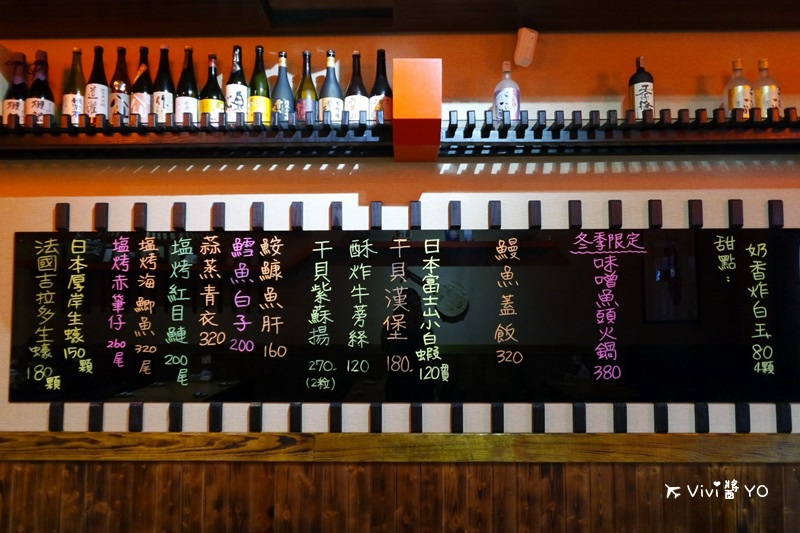 甜點：
奶香炸白玉 80 4顆
冬季限定
味噌魚頭火鍋 380
鰻魚蓋飯 320
日本富士山小白蝦 120
干貝漢堡 180
酥炸牛蒡絲 120
干貝紫蘇揚 270 (2粒)
鮟鱇魚肝 160
鱈魚白子 200
蒜蒸青衣 320
塩烤紅目鰱 200尾
塩烤海鯽魚 320尾
塩烤赤筆仔 260尾
日本厚岸生蠔 150顆
法國吉拉多生蠔 180顆
Vivi醬 YO